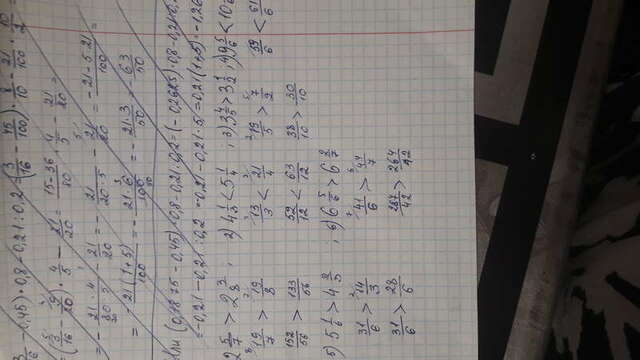 3/16 - 0,45) · 0,8 - 0,21 : 0,2 = (3/16 - 45/100) · 8/10 - 21/100 · 10/2 =
= (3/16 - 9/20) · 4/5 - 21/20 = 15-36/80 · 4/5 - 21/20 =
= - 21·4/80·5 - 21/20 = - 21/20·5 - 21/20 = -21-5·21/100 =
= -21(1+5)/100 = - 21·6/100 = - 21·3/50 = - 63/50
или (0,1875 - 0,45) · 0,8 - 0,21 : 0,2 = (-0,2625) · 0,8 - 0,21 : 0,2
= -0,21 - 0,21 : 0,2 = -0,21 - 0,21 · 5 = -0,21(1+5) = -1,26
2 5/7 > 2 3/8 ; 2) 4 1/3 < 5 1/4 ; 3) 3 4/5 > 3 1/2 ; 4) 9 5/6 < 10
19/7 > 19/8 13/3 < 21/4 19/5 > 7/2 59/6 < 61/6
152/56 > 133/56 52/12 < 63/12 38/10 > 30/10
5) 5 1/6 > 4 2/3 ; 6) 6 5/6 > 6 2/7
31/6 > 14/3 41/6 > 44/7
31/6 > 28/6 287/42 > 264/42